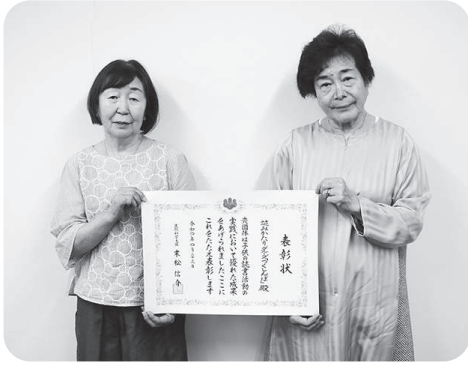 表彰状
読みがたりグループつくしんぼ殿
貴団体は子供の読書活動の
実践において優れた成果
をあげられましたここに
これをたたえ表彰します
令和四年四月二十三日
文部科学大臣 末松信介